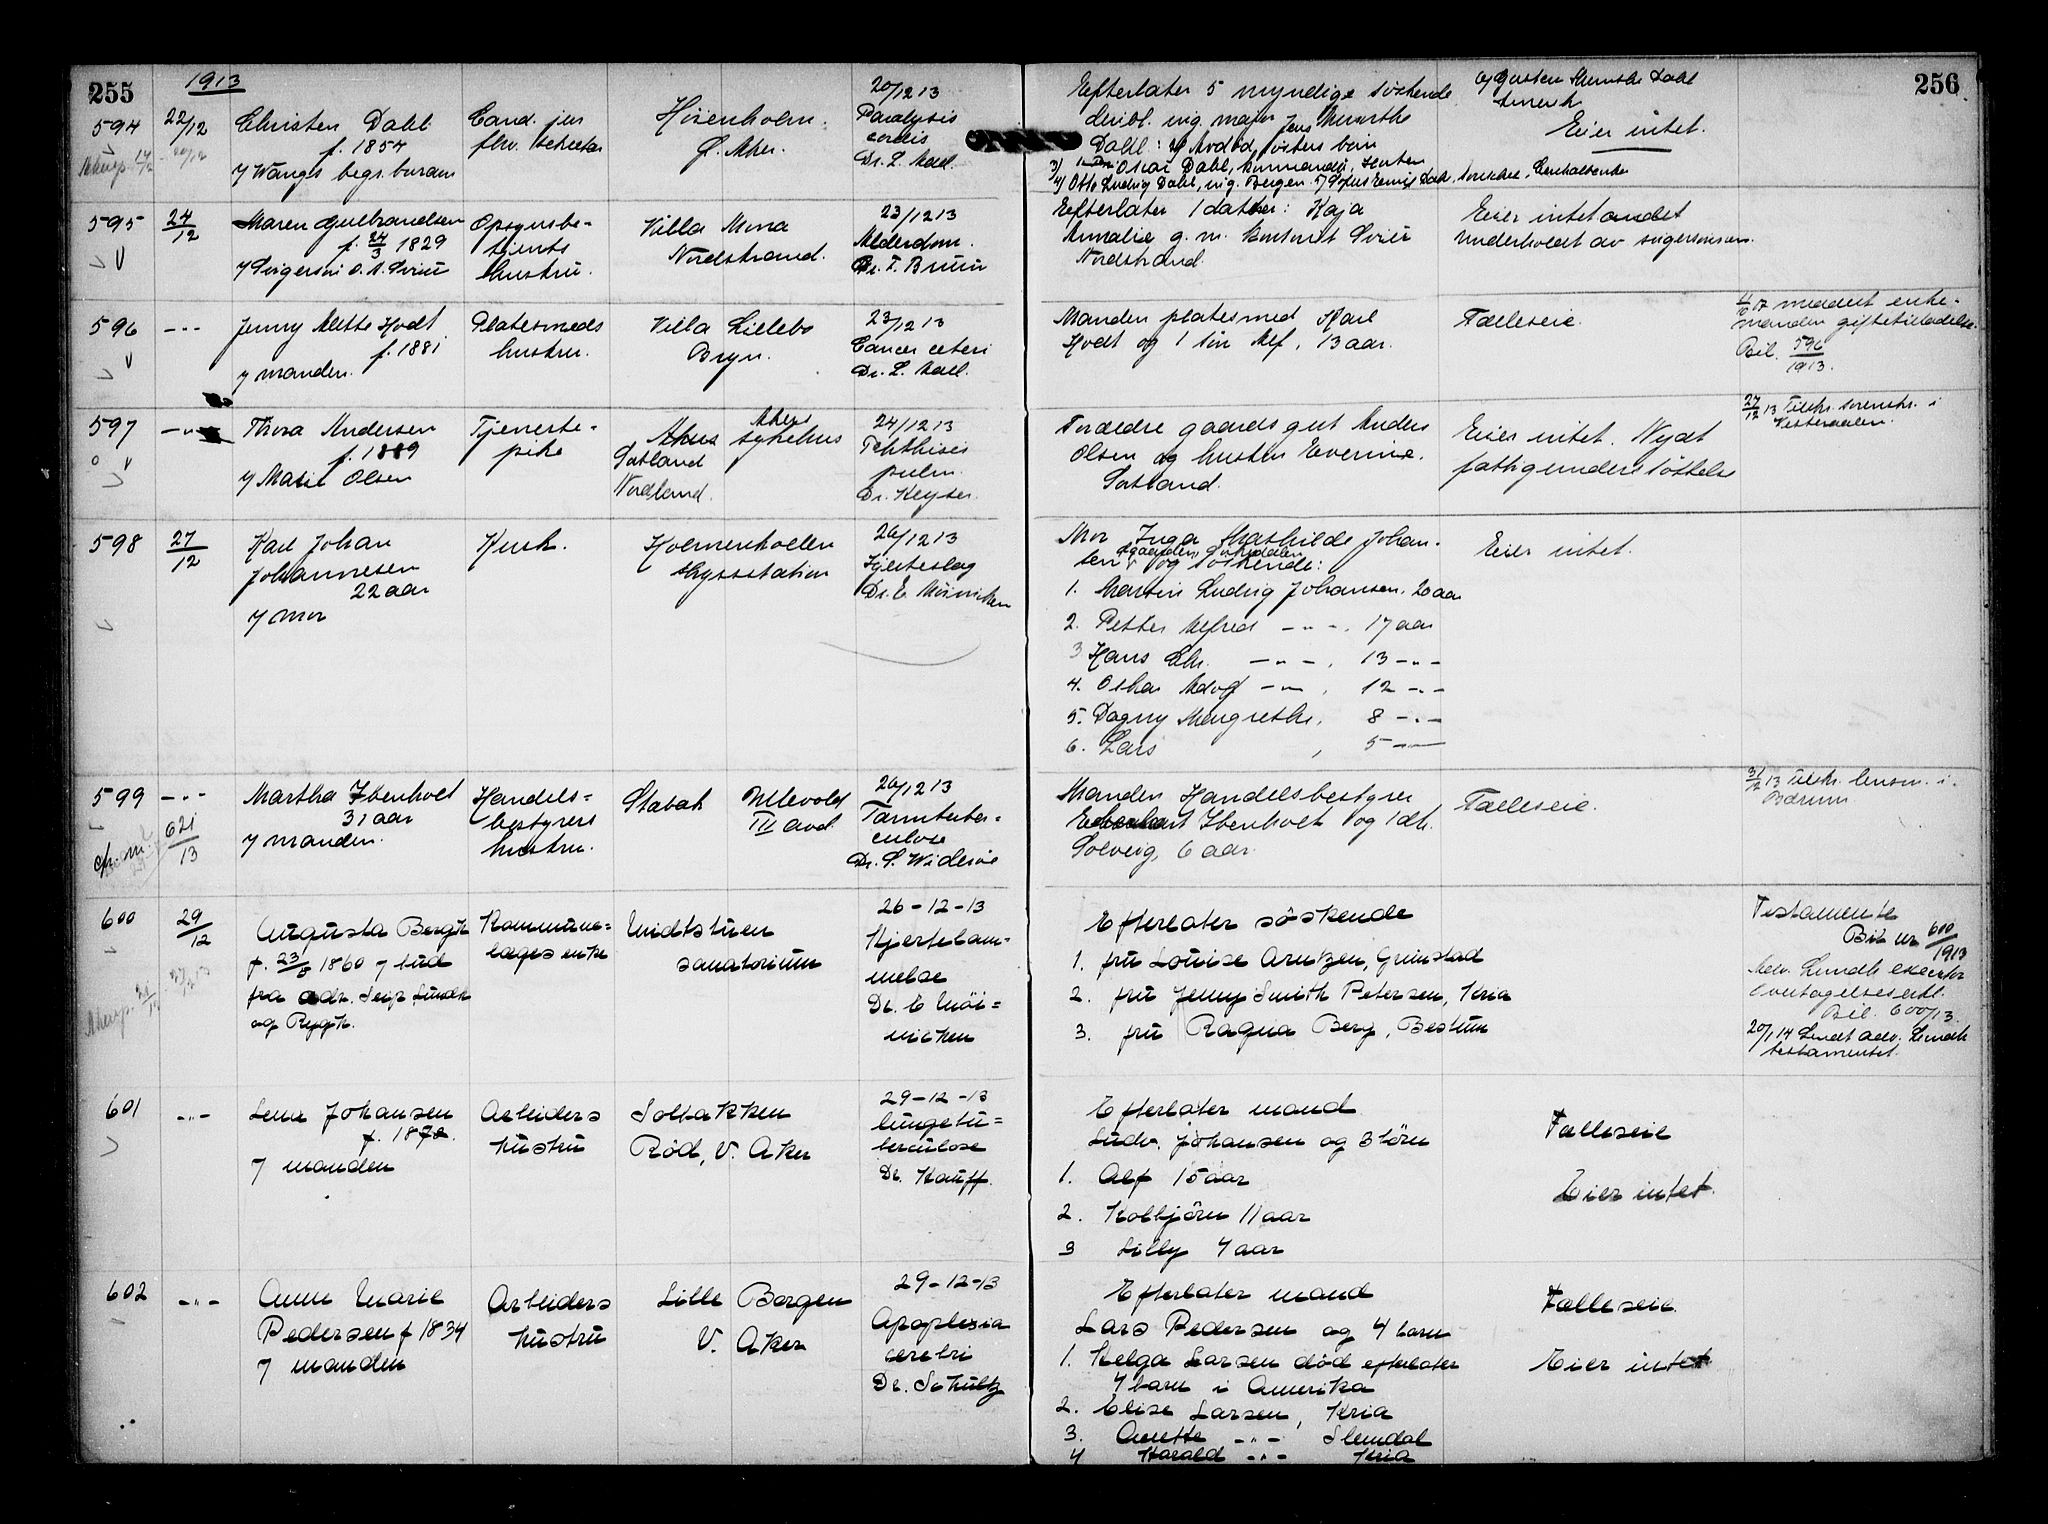 255
1913
256
594
22/12
Christen Dahl
f. 1854
v/ Wangs begr. burau
Cand. jur
fhv. sekretær
Høienholm.
Ø. Aker.
20/12 13
Paralysis
cordis
Dr. L. Mail.
Efterlater 5 myndige søskende
Dahl:
3) Oscar Dahl, Horten
4) Otto Ludvig Dahl, ing. Bergen.
Eier intet.
595
24/12
Maren Gulbrandsen
f. 24/3 1829
v/ Svigersøn
Opsynsbe-
tjents
hustru.
Villa Mona
Nordstrand.
23/12 13
Alderdom.
Dr. T. Bruun
Efterlater 1 datter: Kaja
Amalie g. m.
Nordstrand.
Eier intet andet
Underholdt av svigersønnen.
596
-"-
Jenny Mette Hodt
f. 1881
v/ manden.
Platesmeds
hustru.
Villa Lillebo
Bryn.
23/12 13
Cancer uteri
Dr. L. Mail.
Manden platesmed Karl
Hodt og 1 søn Alf, 13 aar.
Fælleseie.
meddelt enke-
manden giftetilladelse.
Bil. 596/1913.
597
-"-
Thora Andersen
f. 1889
v/ Marie Olsen
Tjeneste-
pike
Akers
Akers sykehus
Sortland
Nordland.
24/12 13
Phthisis
pulm.
Dr. Keyser.
Forældre gaardsgut Anders
Olsen og hustru Everine.
Sortland.
Eier intet. Nydt
fattigunderstøttelse
27/12 13 Tilskr. sorenskr. i
Vesteraalen.
598
27/12
Karl Johan
Johannesen
22 aar
v/ mor
Kusk.
Holmenkollen
skysstation
26/12 13
Hjerteslag
Dr. E. Møinichen
Mor Inga Mathilde Johan-
sen og søskende:
1. Martin Ludvig Johansen. 20 aar
2. Petter Alfred -"-, 17 aar
3 Hans Chr. -"-, 13 -"-
4. Oskar Adolf -"-, 12 -"-
5. Dagny Margrethe, 8 -"-
6. Lars, 5 -"-
Eier intet.
599
-"-
621/13
Martha Ibenholt
31 aar
v/ manden.
Handels-
bestyrers
hustru.
Stabæk
Ullevold
III avd.
26/12 13
Tarmtuber-
culose
Dr. S. Widerøe
Manden Handelsbestyrer
Ibenholt og 1 dtr.
Solveig, 6 aar.
Fælleseie.
31/12 13 Tilskr. lensm. i
Bærum
600
29/12
Augusta Bergh
f. 23/8 1860 v/ bud
fra adv. Seip, Lundh
og Rygh.
Kommune-
læges enke
Midtstuen
sanatorium
26-12-13
Hjertelam-
melse
Dr. E Möi-
nichen
Efterlater söskende
1. fru Louise Arntzen, Grimstad
2. fru Jenny Smith Petersen, Kria
3. fru Ragna Berg, Bestum
Testamente
Bil nr 600/1913
Adv. Lundh executor
Overtagelseserkl.
Bil. 600/13.
20/1 14 Sendt adv. Lundh
testamentet.
601
-"-
Lena Johansen
f. 1872.
v/ manden
Arbeiders
hustru
Solbakken
Röd, V. Aker
29-12-13
Lungetu-
berculose
Dr. Kauff.
Efterlater mand
Ludv. Johansen og 3 börn
1. Alf 15 aar
2. Kolbjörn 11 aar
3 Lilly 4 aar
Fælleseie
Eier intet.
602
-"-
Anne Marie
Pedersen f 1834
v/ manden
Arbeiders
hustru
Lille Borgen
V. Aker
29-12-13
Apoplexia
cerebri
Dr. Schultz
Efterlater mand
Lars Pedersen og 4 barn
1. Helga Larsen död efterlater
4 barn i Amerika
2. Elise Larsen, Kria
3. Anette -"- Slemdal
4 Harald -"- Kria
Fælleseie.
Eier intet